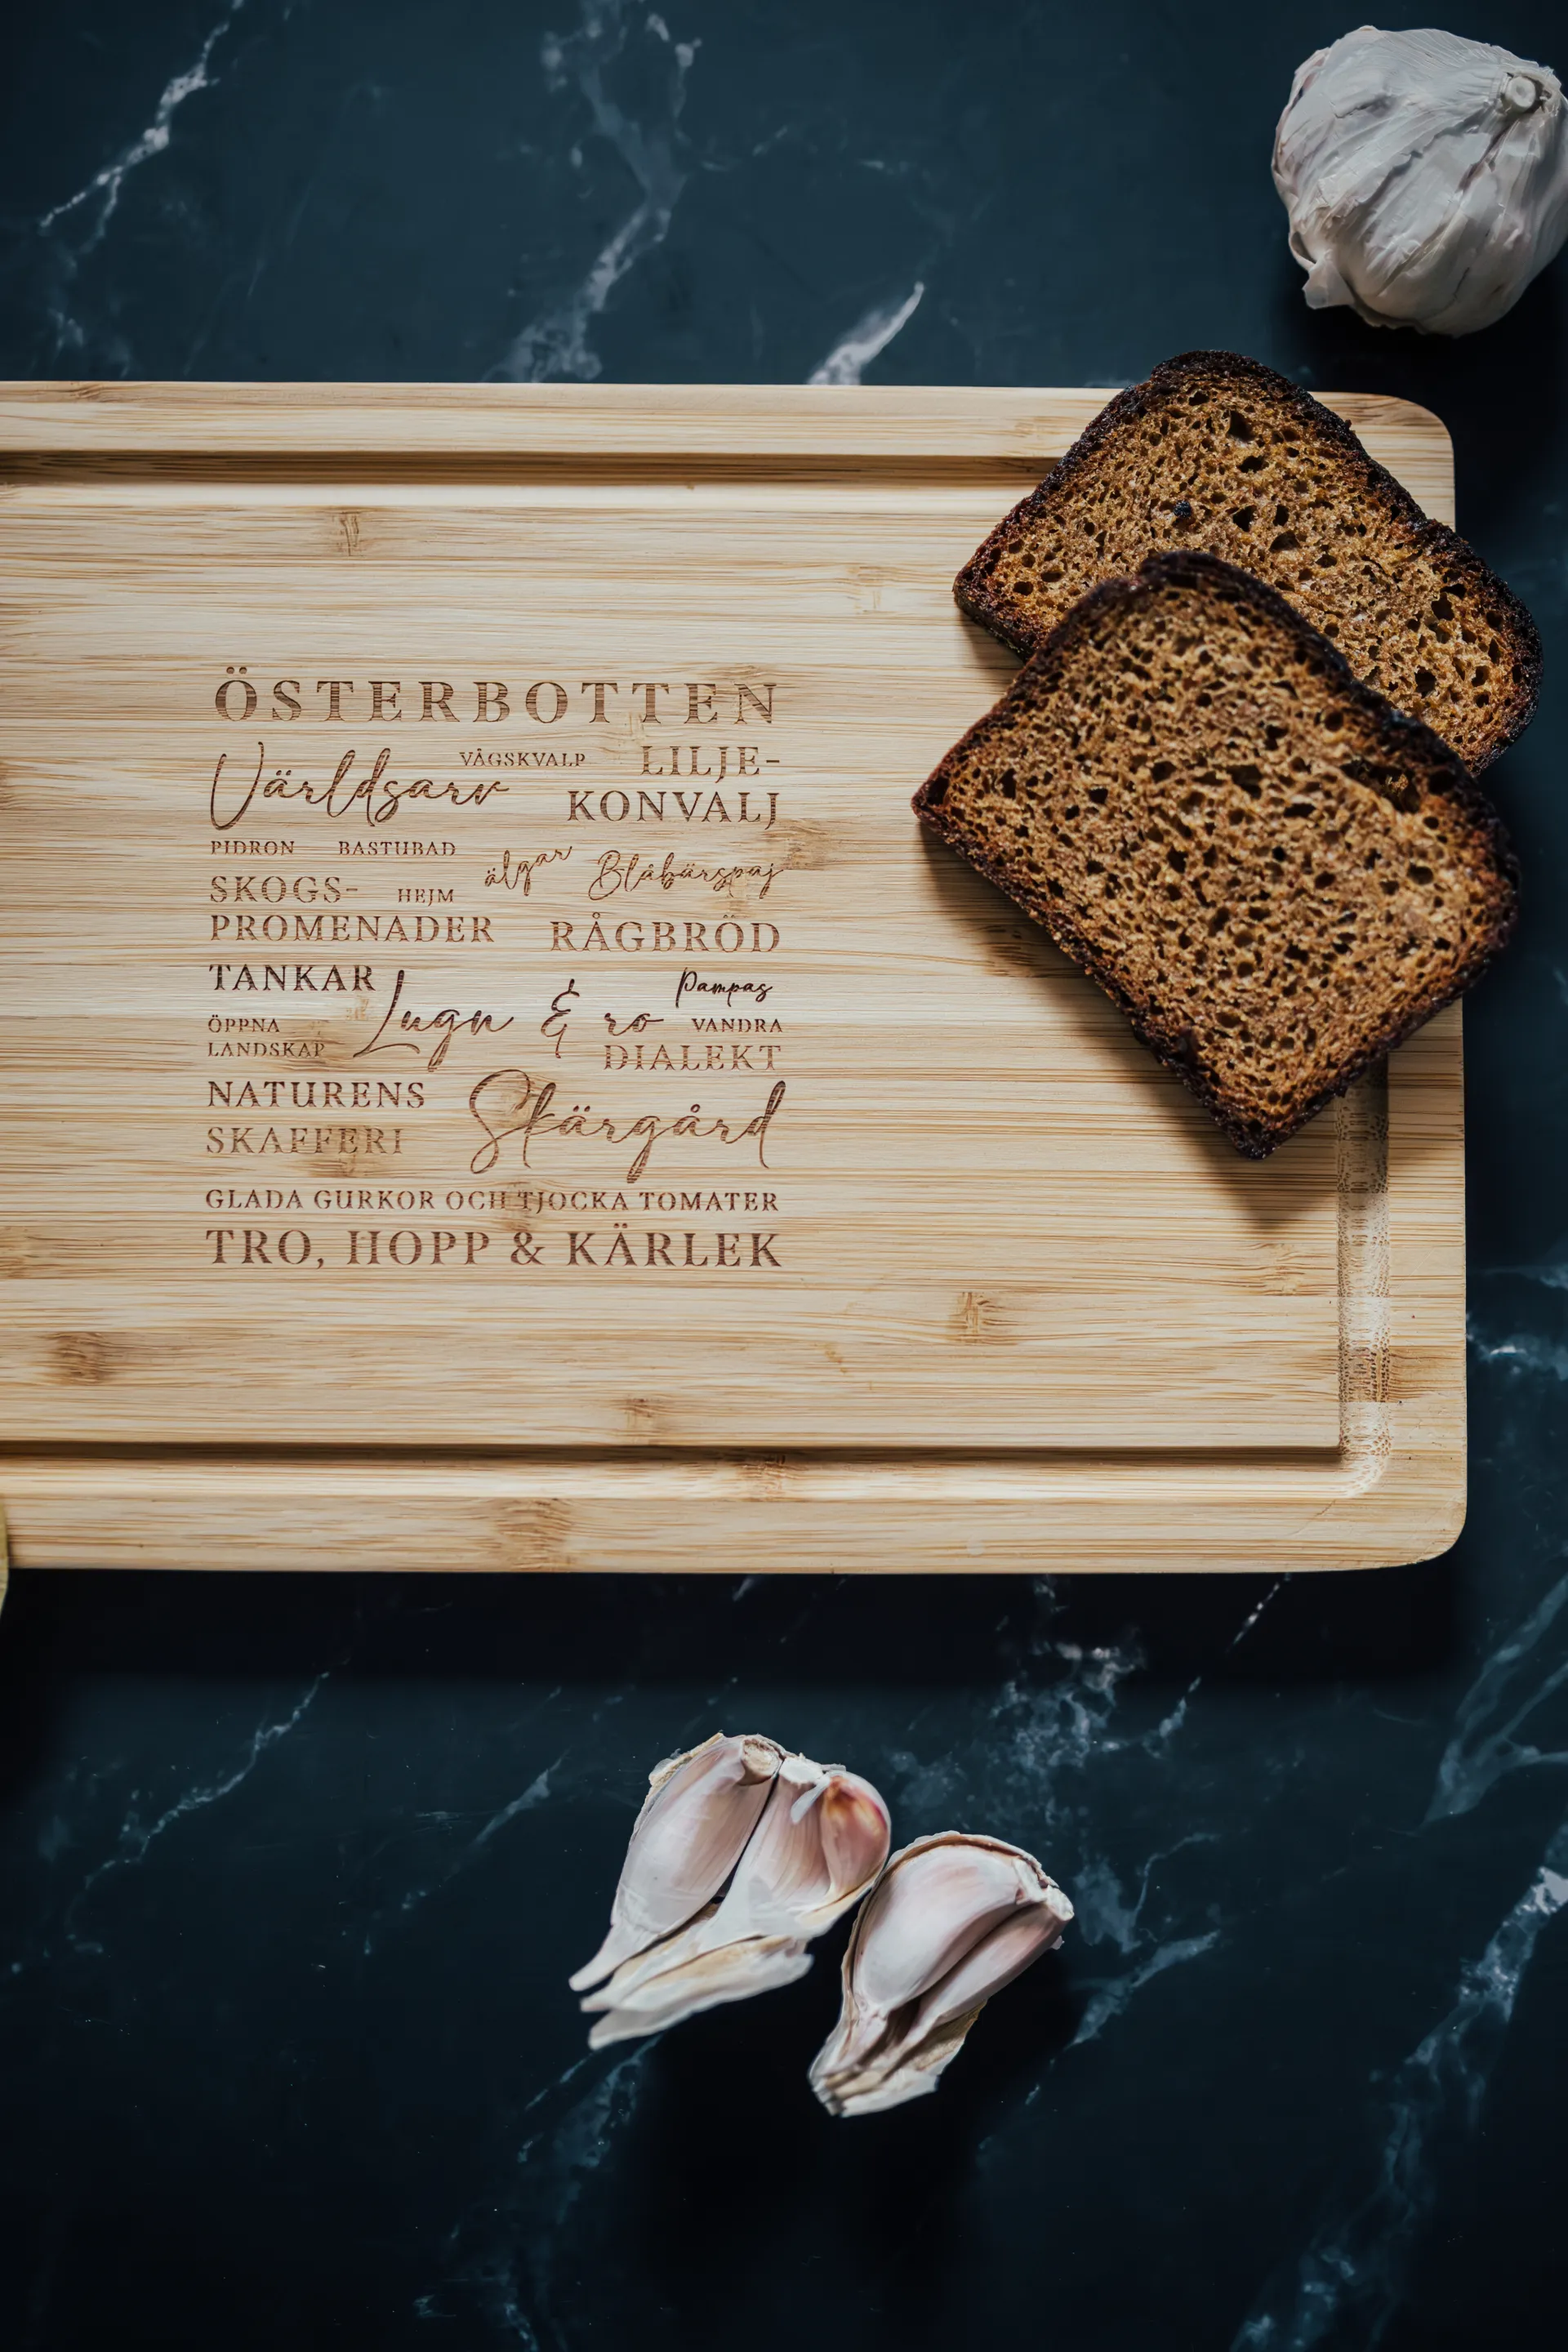 ÖSTERBOTTEN
Världsarv VÅGSKVALP LILJE-
KONVALJ
PIDRON BASTUBAD älgar Blåbärspaj
SKOGS- HEJM
PROMENADER RÅGBRÖD
TANKAR Lugn & ro Pampas
ÖPPNA VANDRA
LANDSKAP DIALEKT
NATURENS Skärgård
SKAFFERI
GLADA GURKOR OCH TJOCKA TOMATER
TRO, HOPP & KÄRLEK